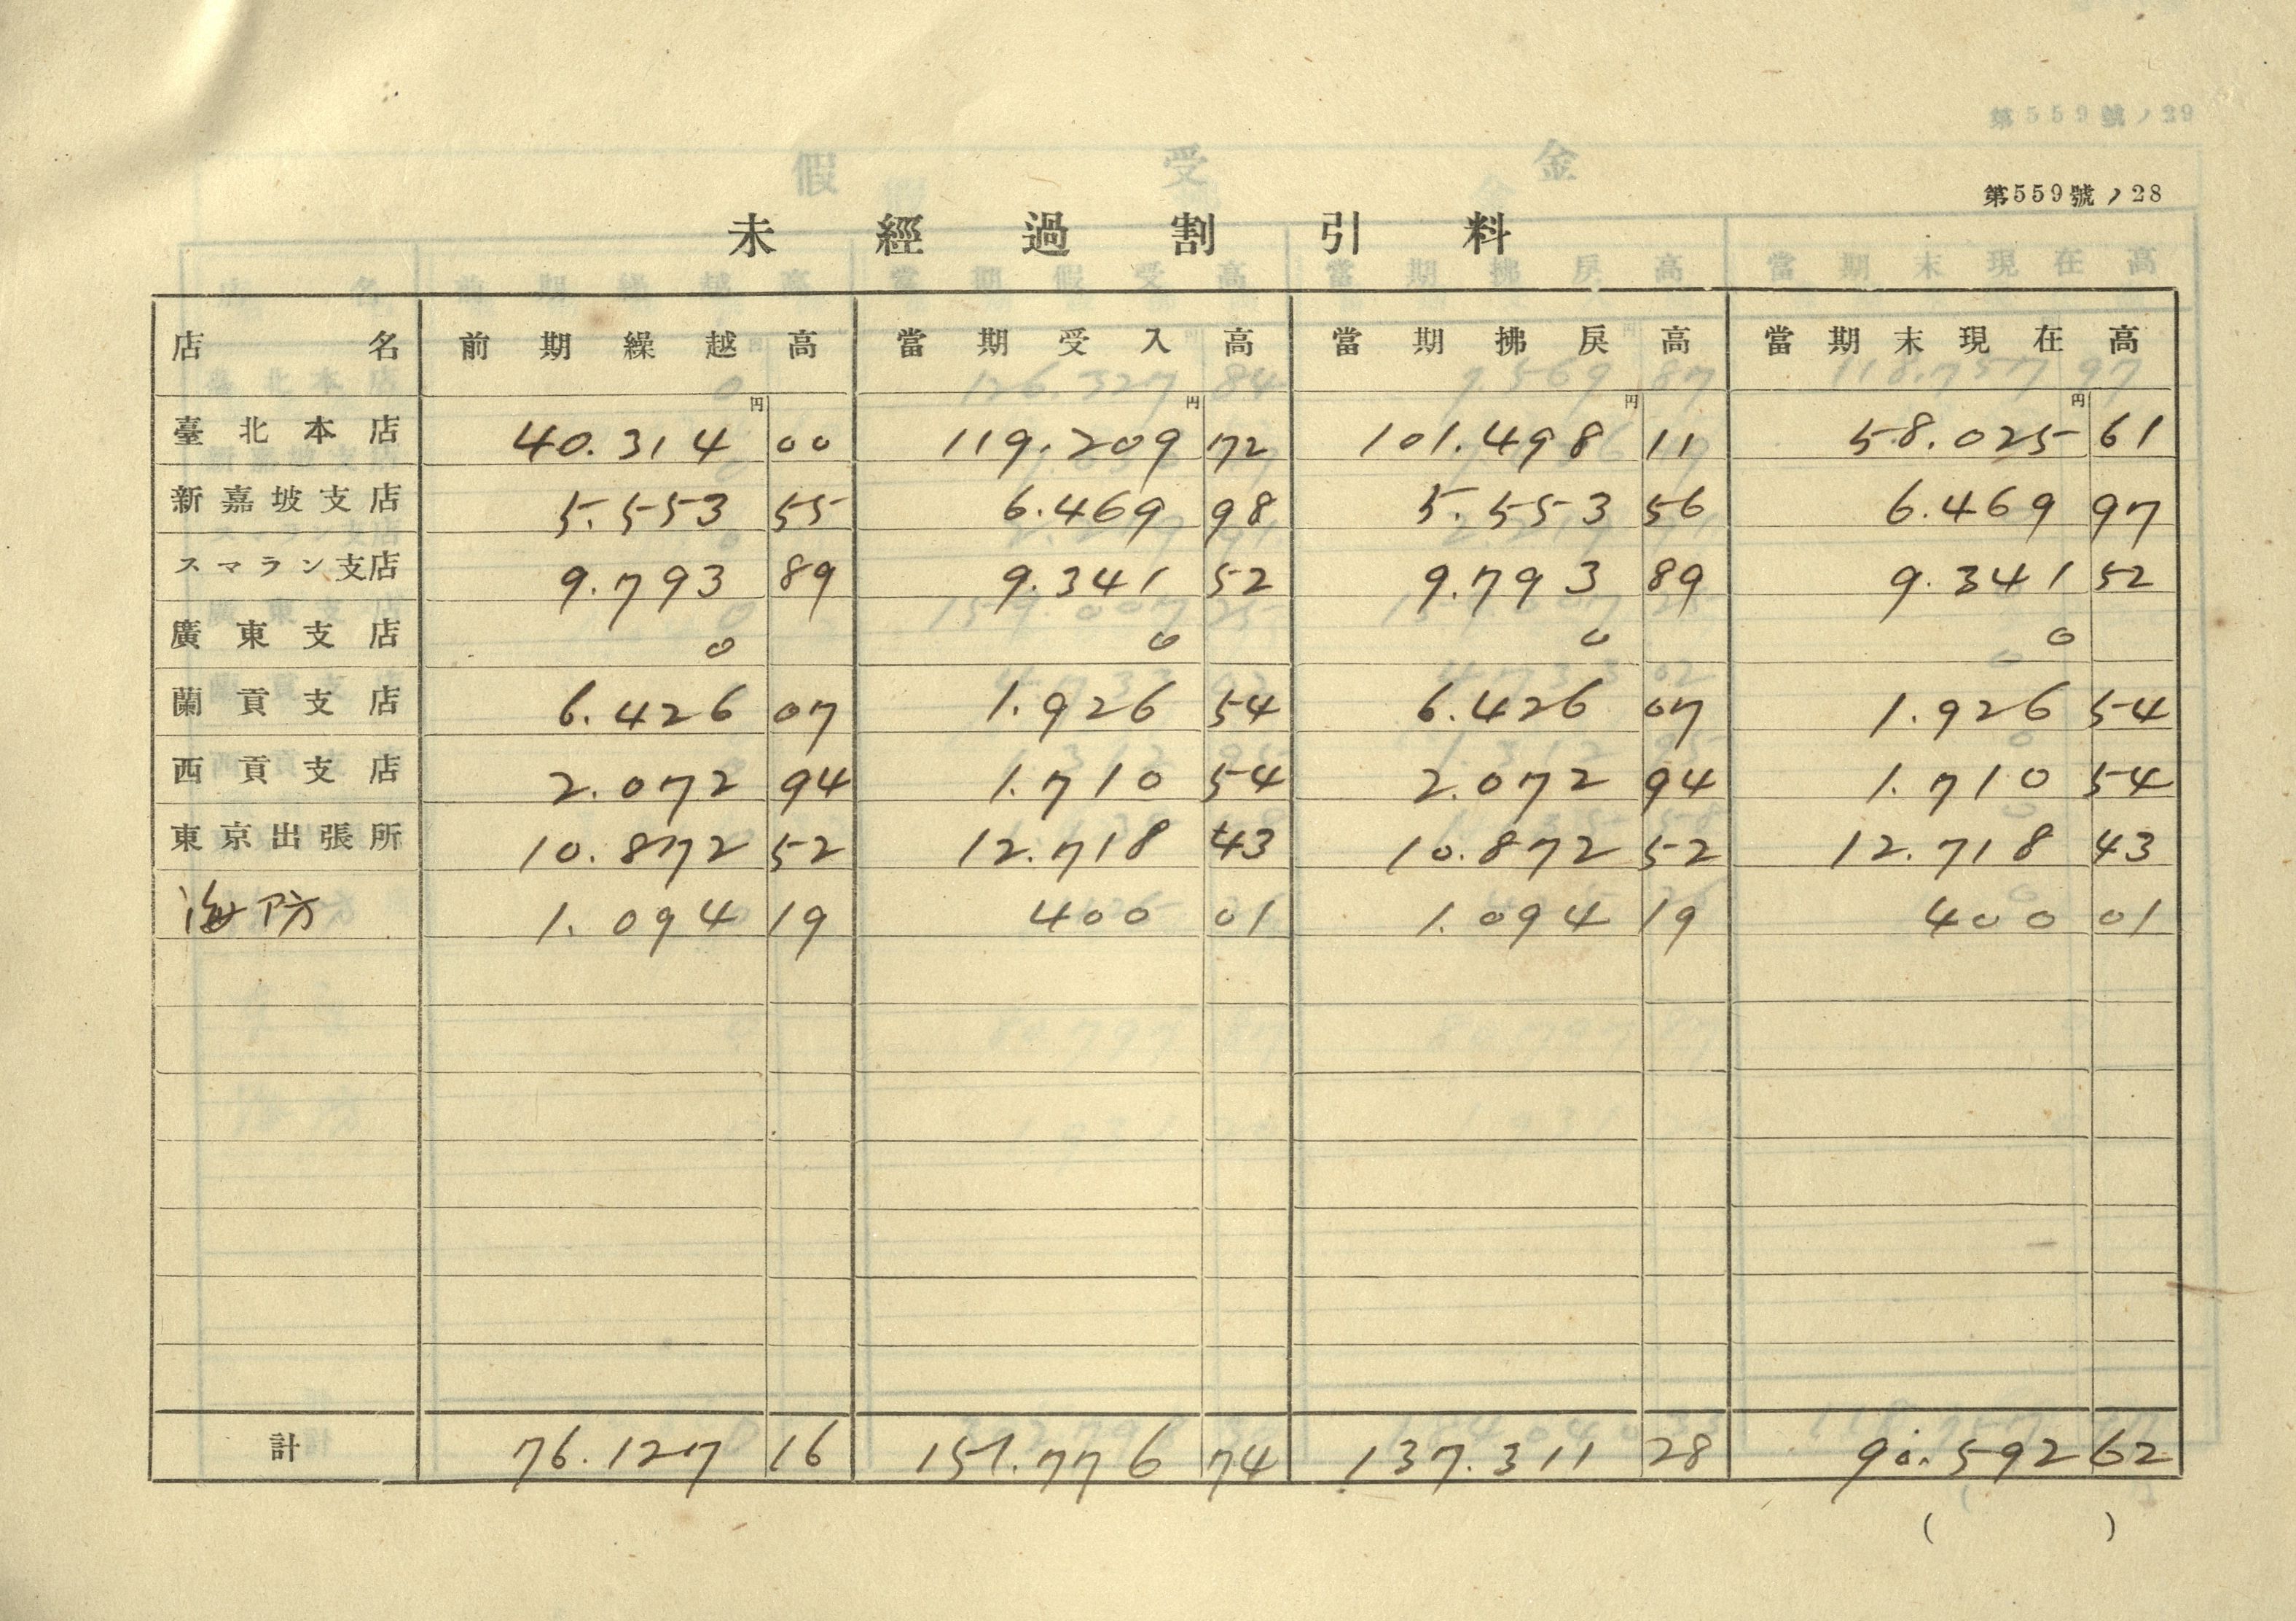 第559號ノ28
未經過割引料
店名 前期繰越高 當期受入高 當期拂戻高 當期末現在高
円 円 円 円
臺北本店 40.314 00 119.209 72 101.498 11 58.025 61
新嘉坡支店 5.553 55 6.469 98 5.553 56 6.469 97
スマラン支店 9.793 89 9.341 52 9.793 89 9.341 52
廣東支店 0 0 0 0
蘭貢支店 6.426 07 1.926 54 6.426 07 1.926 54
西貢支店 2.072 94 1.710 54 2.072 94 1.710 54
東京出張所 10.872 52 12.718 43 10.872 52 12.718 43
海防 1.094 19 400 01 1.094 19 400 01
計 76.127 16 151.776 74 137.311 28 90.592 62
( )